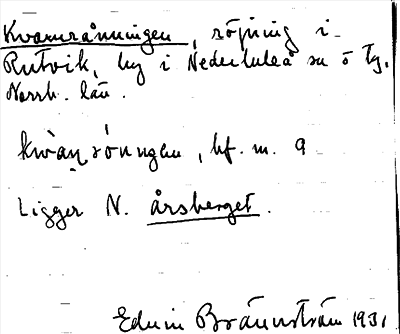 Kvarnrånningen, röjning i
Rutvik, by i Nederluleå sn ö tg,
Norrb. län.
, bf. m. a
Ligger N. årsberget.
Edvin Brännström 1931